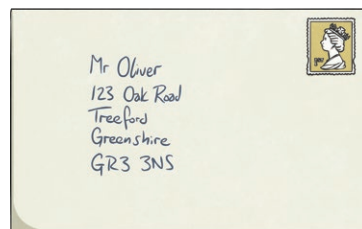 Mr Oliver
123 Oak Road
Treeford
Greenshire
GR3 3NS